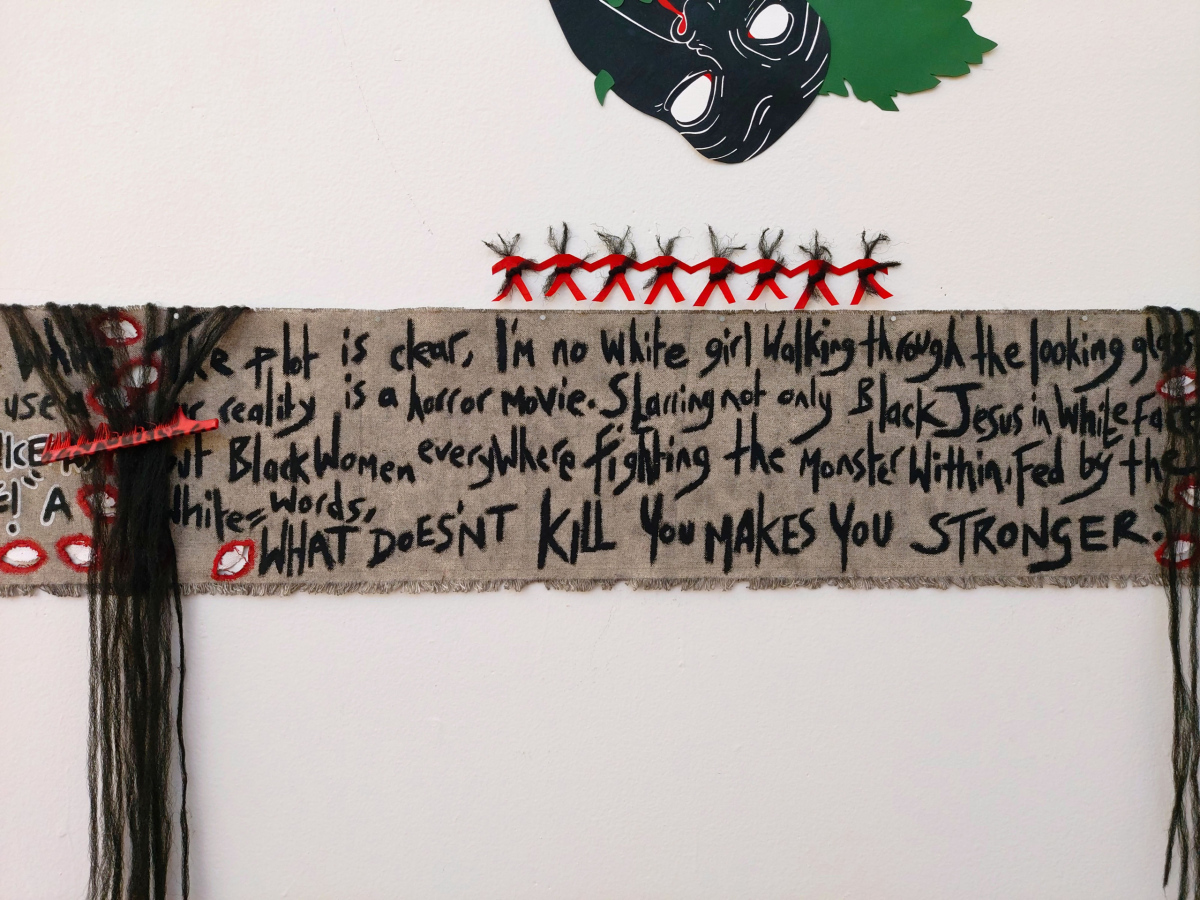 plot is clear, I'm no White girl Walking through the looking glass
use reality is a horror movie. Starring not only Black Jesus in White Face
ICE" but Black Women everyWhere fighting the Monster Within, Fed by the
! A White words,
WHAT DOES'NT KILL YOU MAKES YOU STRONGER."